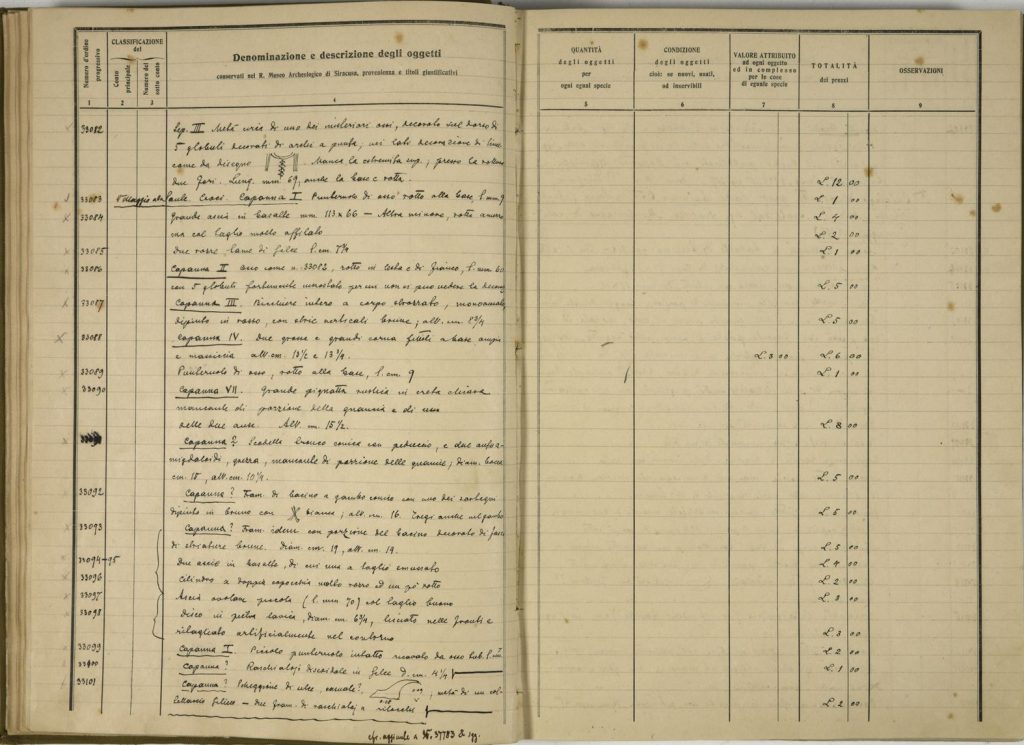 Numero d'ordine progressivo
CLASSIFICAZIONE del
Conto principale
Numero del sotto conto
Denominazione e descrizione degli oggetti
conservati nel R. Museo Archeologico di Siracusa, provenienza e titoli giustificativi
1 2 3 4
QUANTITÀ degli oggetti per ogni egual specie
CONDIZIONE degli oggetti cioè: se nuovi, usati, od inservibili
VALORE ATTRIBUITO ad ogni oggetto ed in complesso per le cose di eguale specie
TOTALITÀ dei prezzi
OSSERVAZIONI
5 6 7 8 9
33082 Sep. III Metà circa di uno dei misteriosi ossi, decorato sul dorso di
5 globuli decorati di archi a punta, nei lati decorazione di linee
come da disegno. Manca la estremità sup.; presso la rottura
due fori. Lung. mm 69, anche la base è rotta. L. 12 00
33083 Villaggio Croci. Capanna I Punteruolo di osso rotto alla base, l. mm. 9 L. 1 00
33084 Grande ascia in basalte mm. 113 x 66 — Altra minore, rotta
ma col taglio molto affilato L. 4 00
L. 2 00
33085 due rozze lame di selce l. cm. 7 3/4 L. 1 00
33086 Capanna II osso come n. 33082, rotto in testa e di fianco, l. mm 60
con 5 globuli fortemente incrostato per cui non si può vedere la decoraz L. 5 00
33087 Capanna III. Bicchiere intero a corpo strozzato, monoansato,
dipinto in rosso, con strie verticali brune; alt. cm. 8 3/4 L. 5 00
33088 Capanna IV. due grosse e grandi corna fittili a base ampia
e massiccia alt. cm. 13 1/2 e 13 3/4. L. 3 00 L. 6 00
33089 Punteruolo di osso, rotto alla base, l. cm. 9 L. 1 00
33090 Capanna VII. Grande pignatta rustica in creta chiara
mancante di porzione della pancia e di una
delle due anse. Alt. cm. 15 1/2. L. 3 00
Capanna? Scodella tronco conica con peduccio, e due anse a-
migdaloidi, grezza, mancante di porzione delle pance; diam. bocca
cm. 15, alt. cm. 10 1/4. L. 5 00
33092 Capanna? Fram. di bacino a gambo conico con uno dei sostegni
dipinto in bruno con bianca; alt. cm. 16. anche nel gambo L. 5 00
33093 Capanna? Fram. idem con porzione del bacino decorato di fasci
di striature brune. Diam. cm. 19, alt. cm. 19. L. 5 00
33094-95 due ascie in basalto, di cui una a taglio smussato L. 4 00
33096 Cilindro a doppia capocchia molto rozzo ed un po' rotto L. 2 00
33097 Ascia ovolare piccola (l. mm 70) col taglio buono L. 3 00
33098 Disco in pietra lavica, diam. cm. 6 3/4, lisciato nelle fronti e
ritagliato artificialmente nel contorno L. 3 00
33099 Capanna I. Piccolo punteruolo intatto ricavato da osso L. 2 00
33100 Capanna? Raschiatoj discoidale in selce D. cm. 4 1/4 L. 1 00
33101 Capanna? , metà di un col-
tellaccio siliceo — due fram. di raschiatoj L. 2 00
cfr. aggiunte a 37783 & sgg.